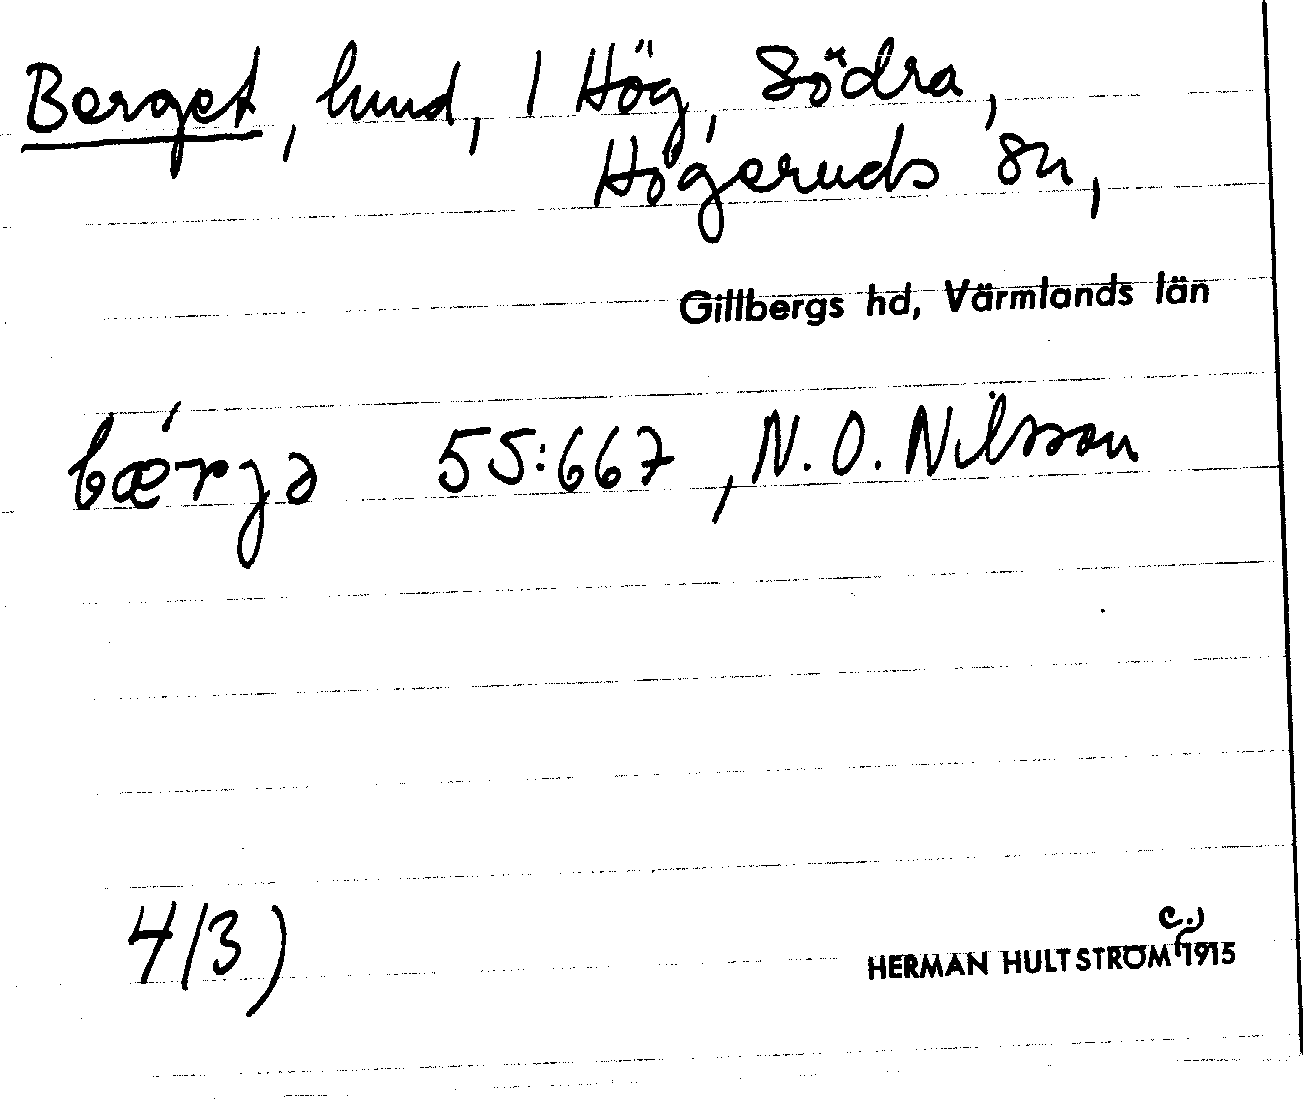 Berget, lund, 1 Hög, Södra,
Högeruds sn,
Gillbergs hd, Värmlands län
bærjə 55:667, N. O. Nilsson
4/3)
c.)
HERMAN HULTSTRÖM 1915